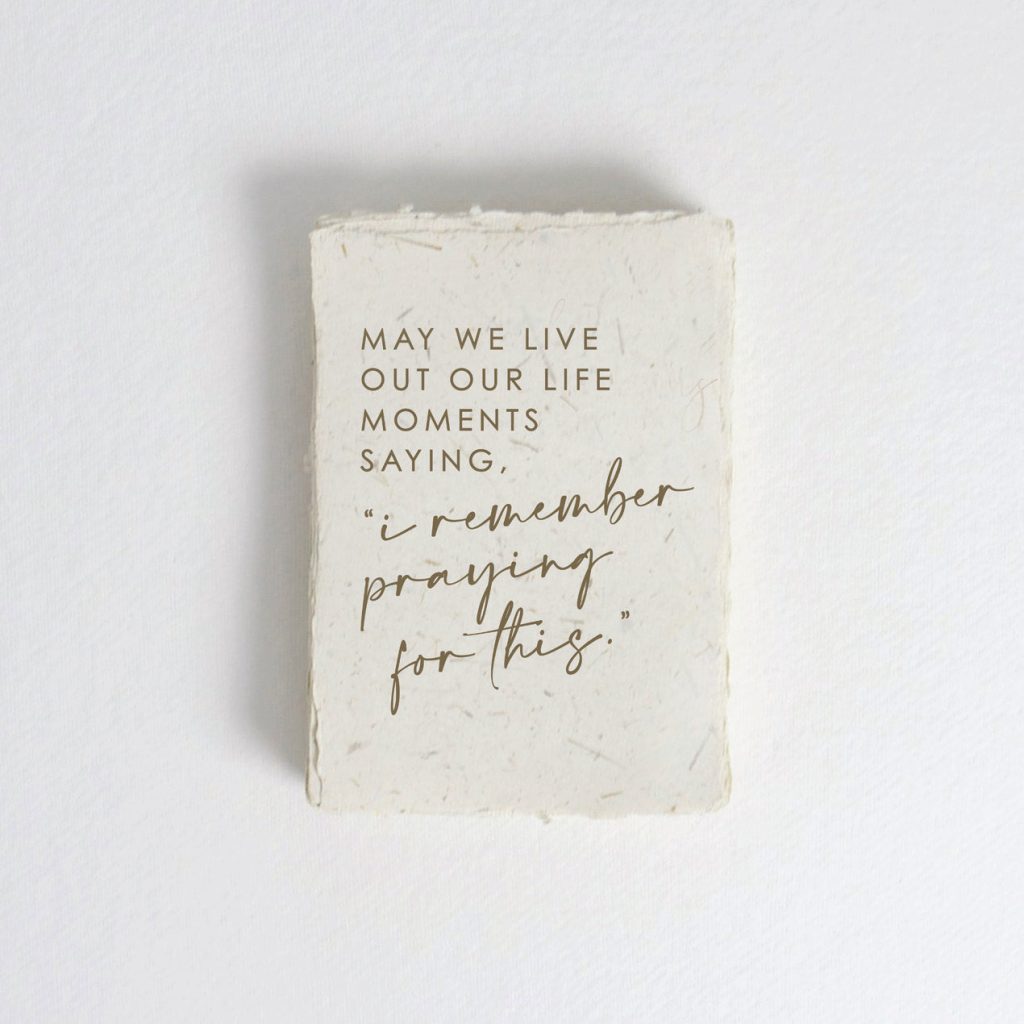 MAY WE LIVE
OUT OUR LIFE
MOMENTS
SAYING,
“i remember
praying
for this.”